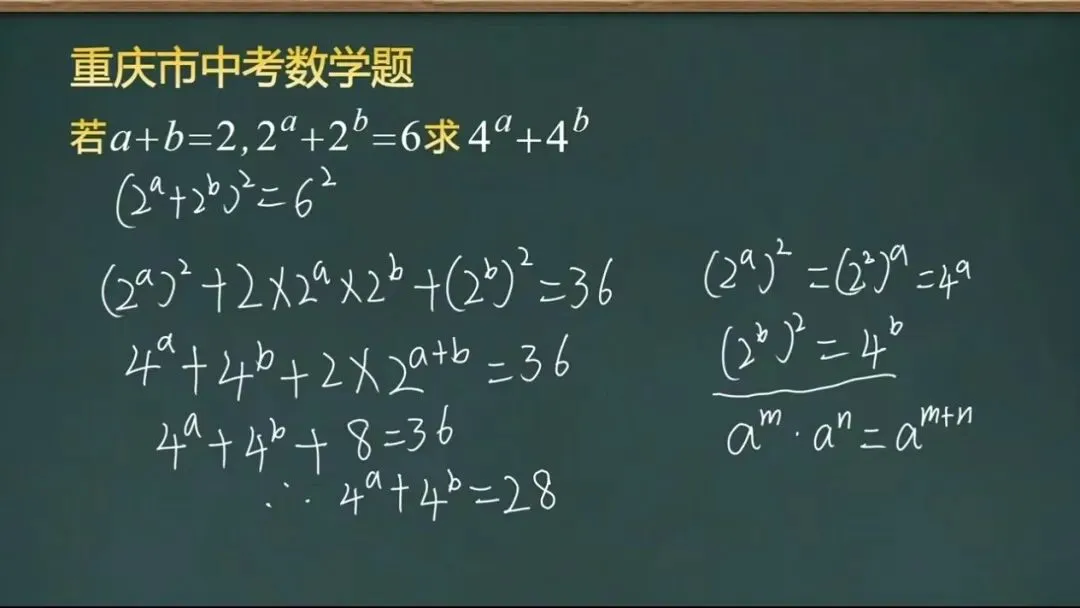 重庆市中考数学题
若a+b=2,2^a+2^b=6求4^a+4^b
(2^a+2^b)^2=6^2
(2^a)^2+2×2^a×2^b+(2^b)^2=36
4^a+4^b+2×2^{a+b}=36
4^a+4^b+8=36
∴4^a+4^b=28
(2^a)^2=(2^2)^a=4^a
(2^b)^2=4^b
a^m·a^n=a^{m+n}